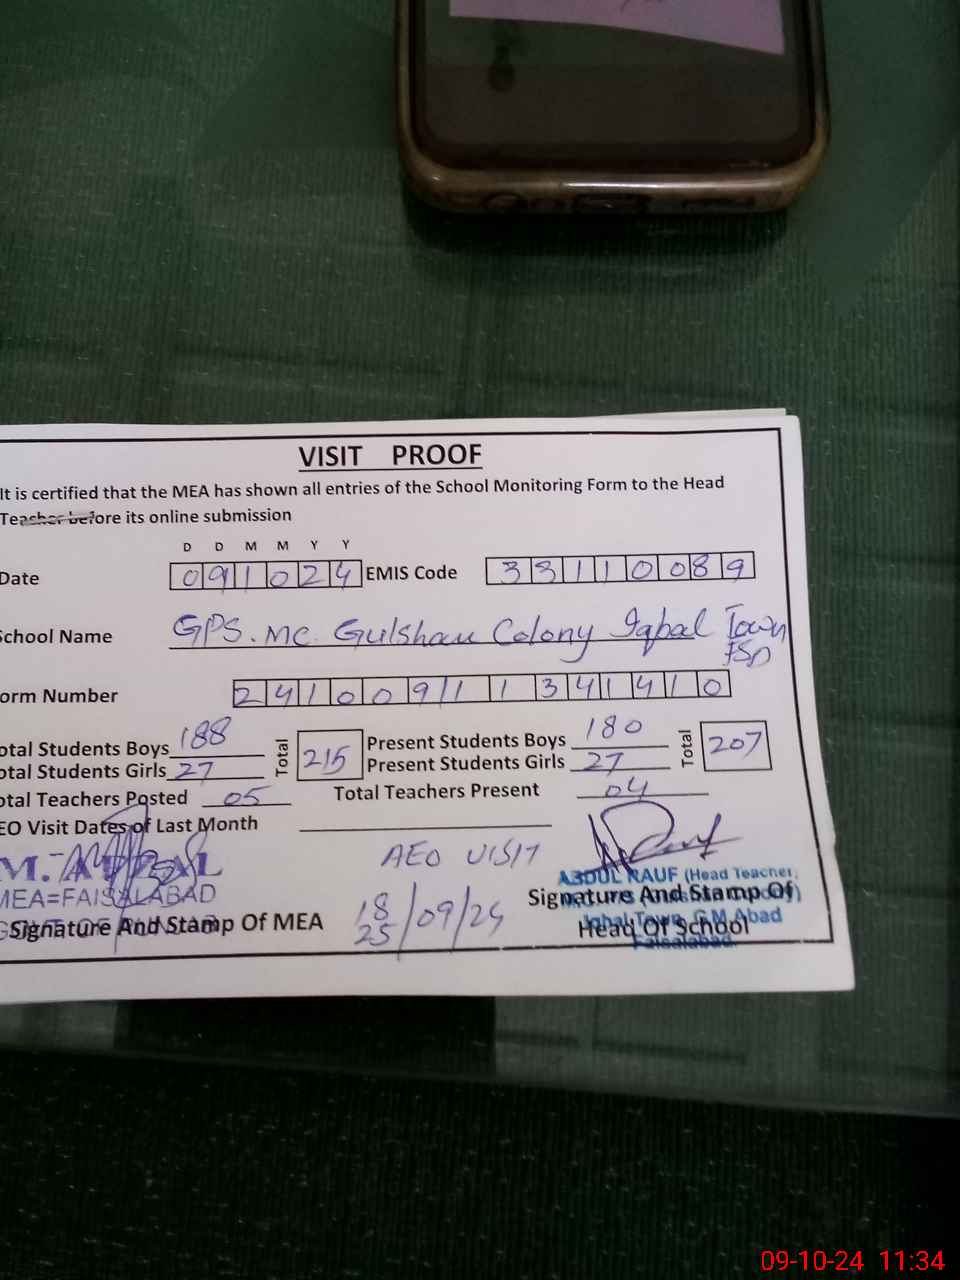 VISIT PROOF
It is certified that the MEA has shown all entries of the School Monitoring Form to the Head
Teacher before its online submission
D D M M Y Y
Date 091024 EMIS Code 33110089
School Name GPS. MC. Gulshan Colony Iqbal Town
FSD
orm Number 24100911341410
otal Students Boys 188 Total 215 Present Students Boys 180 Total 207
otal Students Girls 27 Present Students Girls 27
otal Teachers Posted 05 Total Teachers Present 04
EO Visit Dates of Last Month
AEO VISIT
M. AFZAL
MEA=FAISALABAD
Signature And Stamp Of MEA
18
25 /09/24
ABDUL RAUF (Head Teacher,
Signature And Stamp Of
Iqbal Town G.M Abad
Head Of School
Faisalabad.
09-10-24 11:34